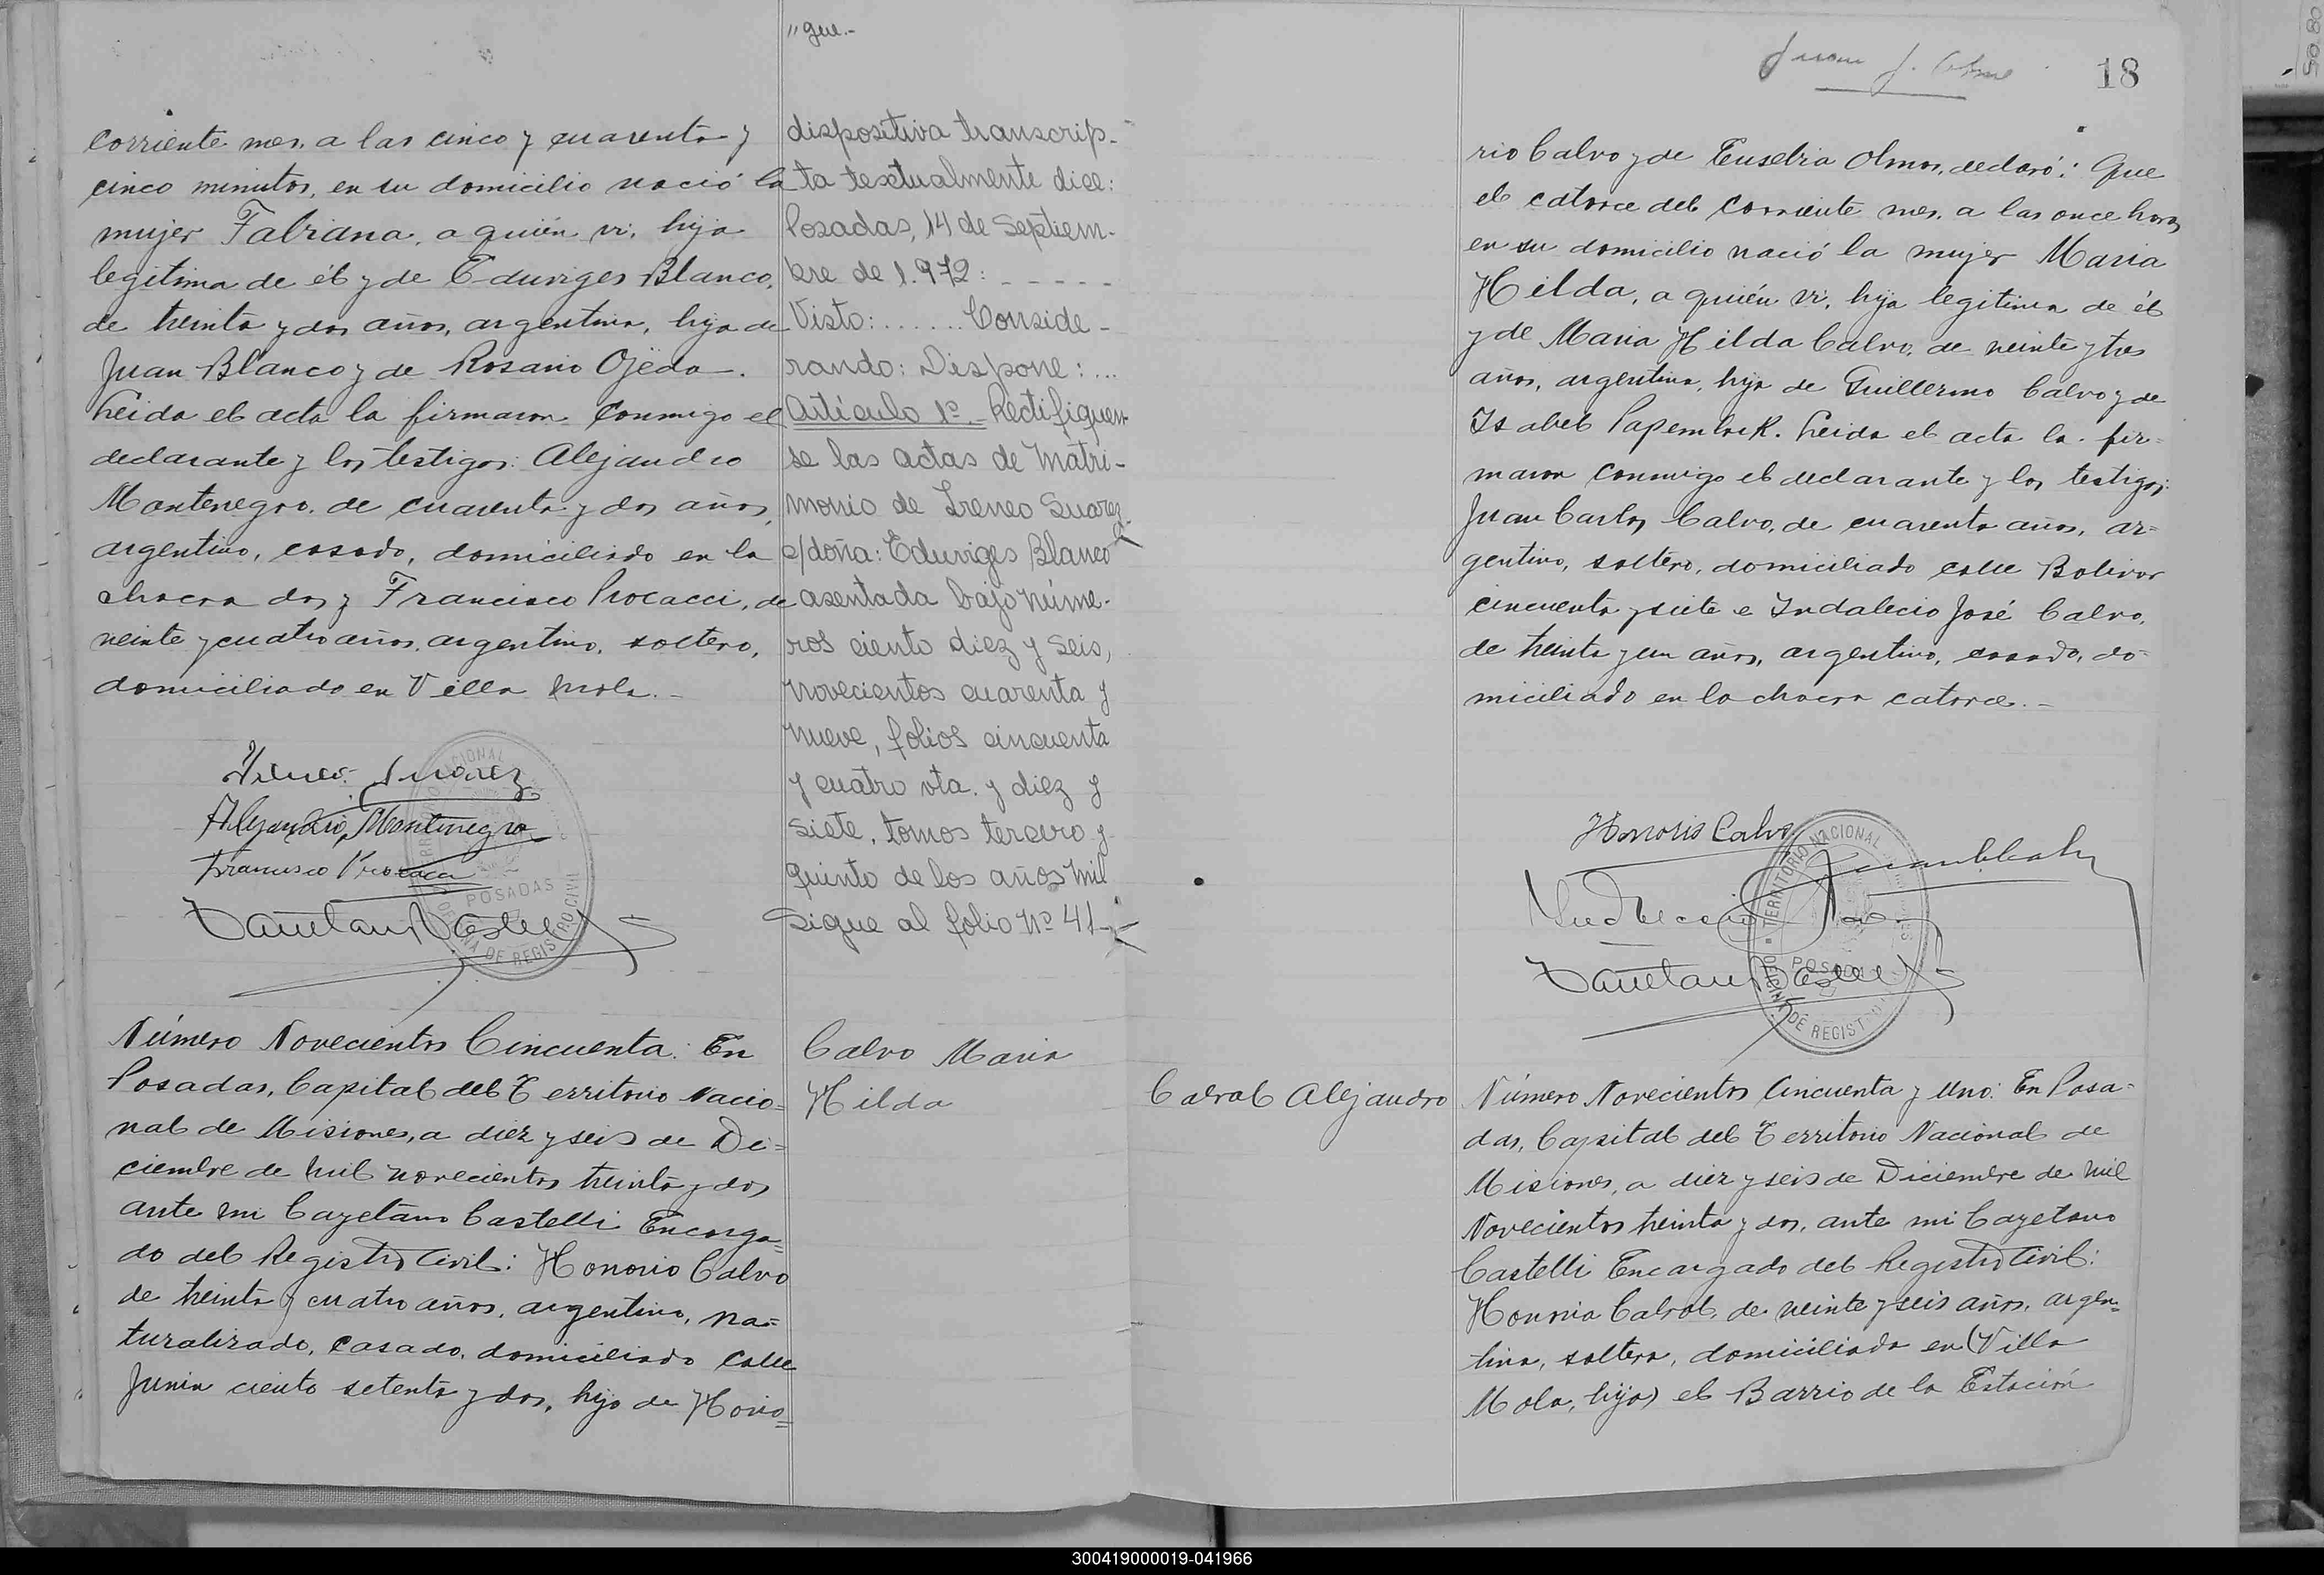 corriente mes, a las cinco y cuarenta y
cinco minutos, en su domicilio nació la
mujer Fabiana, a quién vi, hija
legitima de él y de Eduviges Blanco,
de treinta y dos años, argentina, hija de
Juan Blanco y de Rosario Ojeda.
Leida el acta la firmaron conmigo el
declarante y los testigos: Alejandro
Montenegro, de cuarenta y dos años,
argentino, casado, domiciliado en la
chacra dos y Francisco Procacci, de
veinte y cuatro años, argentino, soltero,
domiciliado en Villa Mola.-
Ireneo Suarez
Alejandro Montenegro
Francisco Procacci
Cayetano Castelli
POSADAS
OFICINA DE REGISTRO CIVIL
"gue.-
dispositiva transcrip-
ta textualmente dice:
Posadas, 14 de Septiem-
bre de 1.972: - - - - -
Visto: ...... Conside-
rando: Dispone: ...
Artículo 1º.- Rectifiquen-
se las actas de Matri-
monio de Ireneo Suarez
c/doña: Eduviges Blanco
asentada bajo núme-
ros ciento diez y seis,
novecientos cuarenta y
nueve, folios cincuenta
y cuatro vta. y diez y
siete, tomos tercero y
quinto de los años mil
Sigue al folio Nº 41-
Número Novecientos Cincuenta: En
Posadas, Capital del Territorio Nacio=
nal de Misiones, a diez y seis de Di=
ciembre de mil novecientos treinta y dos
ante mi Cayetano Castelli Encarga=
do del Registro Civil: Honorio Calvo
de treinta y cuatro años, argentino, na=
turalizado, casado, domiciliado calle
Junin ciento setenta y dos, hijo de Hono=
Calvo Maria
Hilda
Juan J.
18
rio Calvo y de Eusebia Olmos, declaró: Que
el catorce del corriente mes, a las once horas
en su domicilio nació la mujer Maria
Hilda, a quién vi, hija legitima de él
y de Maria Hilda Calvo, de veinte y tres
años, argentina, hija de Guillermo Calvo y de
Isabel PapembrocK. Leida el acta la fir=
maron conmigo el declarante y los testigos:
Juan Carlos Calvo, de cuarenta años, ar=
gentino, soltero, domiciliado calle Bolivar
cincuenta y siete e Indalecio José Calvo,
de treinta y un años, argentino, casado, do=
miciliado en la chacra catorce.-
Honorio Calvo
Cayetano Castelli
TERRITORIO NACIONAL
POSADAS
OFICINA DE REGISTRO
Cabral Alejandro
Número Novecientos Cincuenta y Uno: En Posa=
das, Capital del Territorio Nacional de
Misiones, a diez y seis de Diciembre de mil
Novecientos treinta y dos, ante mi Cayetano
Castelli Encargado del Registro Civil:
Honoria Cabral, de veinte y seis años, argen=
tina, soltera, domiciliada en (Villa
Mola, hija) el Barrio de la Estación
300419000019-041966